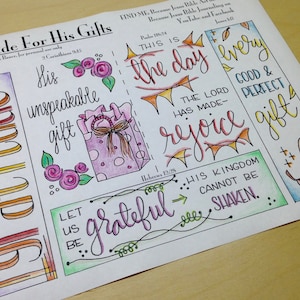 de For His Gifts
FIND ME Because Jesus Bible
Because Jesus Bible Journaling on
YouTube and Facebook
2 Corinthians 9:15
Psalm 118:24
James 1:17
His
unspeakable
gift
THIS IS
the day
THE LORD
HAS MADE-
rejoice
every
GOOD &
PERFECT
gift
gratitude
Hebrews 12:28
LET
US
BE
grateful
HIS KINGDOM
CANNOT BE
SHAKEN.